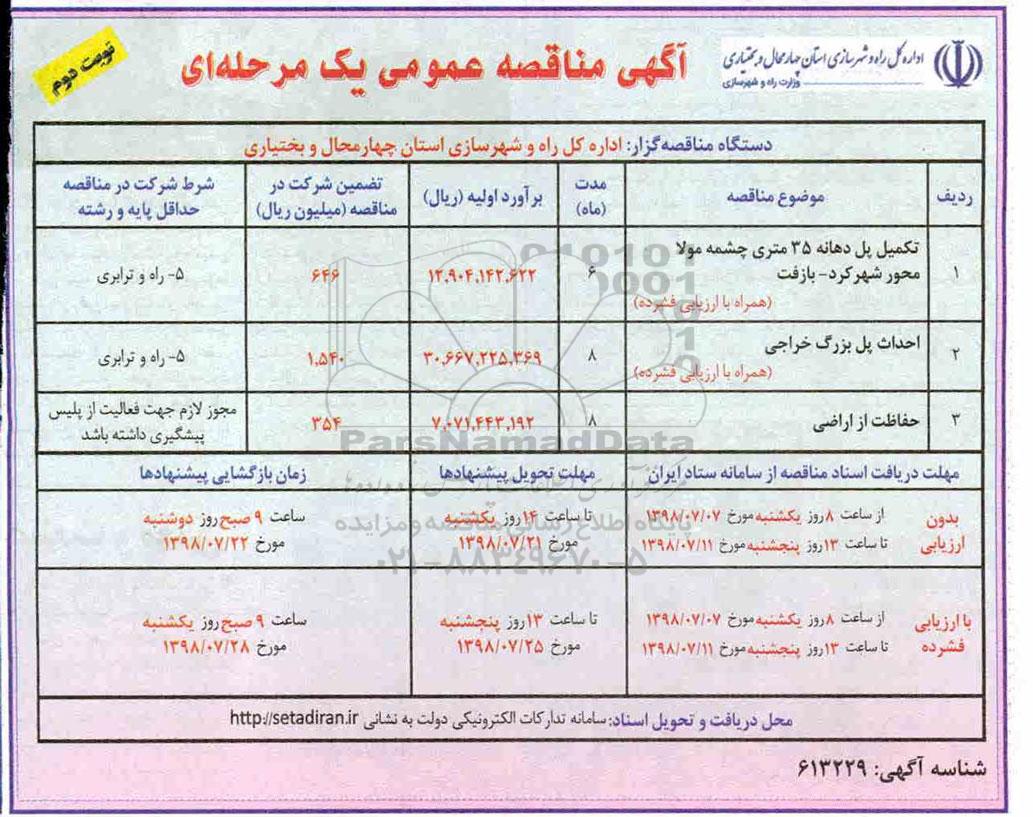 اداره کل راه و شهرسازی استان چهارمحال و بختیاری
وزارت راه و شهرسازی
آگهی مناقصه عمومی یک مرحله‌ای
نوبت دوم
دستگاه مناقصه‌گزار: اداره کل راه و شهرسازی استان چهارمحال و بختیاری
ردیف
موضوع مناقصه
مدت
(ماه)
برآورد اولیه (ریال)
تضمین شرکت در
مناقصه (میلیون ریال)
شرط شرکت در مناقصه
حداقل پایه و رشته
۱
تکمیل پل دهانه ۳۵ متری چشمه مولا
محور شهرکرد- بازفت
(همراه با ارزیابی فشرده)
۶
۱۲,۹۰۴,۱۴۲,۶۲۲
۶۴۶
۵- راه و ترابری
۲
احداث پل بزرگ خراجی
(همراه با ارزیابی فشرده)
۸
۳۰,۶۶۷,۲۲۵,۳۶۹
۱,۵۴۰
۵- راه و ترابری
۳
حفاظت از اراضی
۸
۷,۰۷۱,۴۴۳,۱۹۲
۳۵۴
مجوز لازم جهت فعالیت از پلیس
پیشگیری داشته باشد
مهلت دریافت اسناد مناقصه از سامانه ستاد ایران
مهلت تحویل پیشنهادها
زمان بازگشایی پیشنهادها
بدون
ارزیابی
از ساعت ۸ روز یکشنبه مورخ ۱۳۹۸/۰۷/۰۷
تا ساعت ۱۳ روز پنجشنبه مورخ ۱۳۹۸/۰۷/۱۱
تا ساعت ۱۴ روز یکشنبه
مورخ ۱۳۹۸/۰۷/۲۱
ساعت ۹ صبح روز دوشنبه
مورخ ۱۳۹۸/۰۷/۲۲
با ارزیابی
فشرده
از ساعت ۸ روز یکشنبه مورخ ۱۳۹۸/۰۷/۰۷
تا ساعت ۱۳ روز پنجشنبه مورخ ۱۳۹۸/۰۷/۱۱
تا ساعت ۱۳ روز پنجشنبه
مورخ ۱۳۹۸/۰۷/۲۵
ساعت ۹ صبح روز یکشنبه
مورخ ۱۳۹۸/۰۷/۲۸
محل دریافت و تحویل اسناد: سامانه تدارکات الکترونیکی دولت به نشانی http://setadiran.ir
شناسه آگهی: ۶۱۳۲۲۹
ParsNamadData
پایگاه اطلاع رسانی مناقصه و مزایده
۰۲۱-۸۸۳۴۹۶۷۰-۵